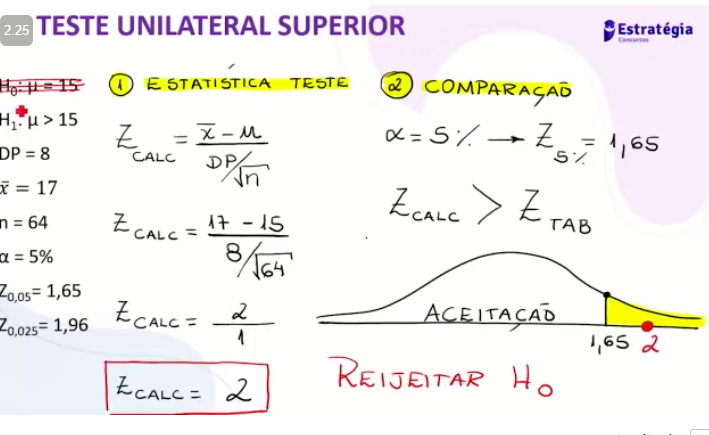 2.25
TESTE UNILATERAL SUPERIOR
Estratégia
Concursos
H₀: μ = 15
H₁: μ > 15
DP = 8
x̄ = 17
n = 64
α = 5%
Z₀,₀₅= 1,65
Z₀,₀₂₅= 1,96
1 ESTATÍSTICA TESTE
Z CALC = x̄ - μ / DP/√n
Z CALC = 17 - 15 / 8/√64
Z CALC = 2 / 1
Z CALC = 2
2 COMPARAÇÃO
α = 5% → Z 5% = 1,65
Z CALC > Z TAB
ACEITAÇÃO
1,65 2
REIJEITAR H₀